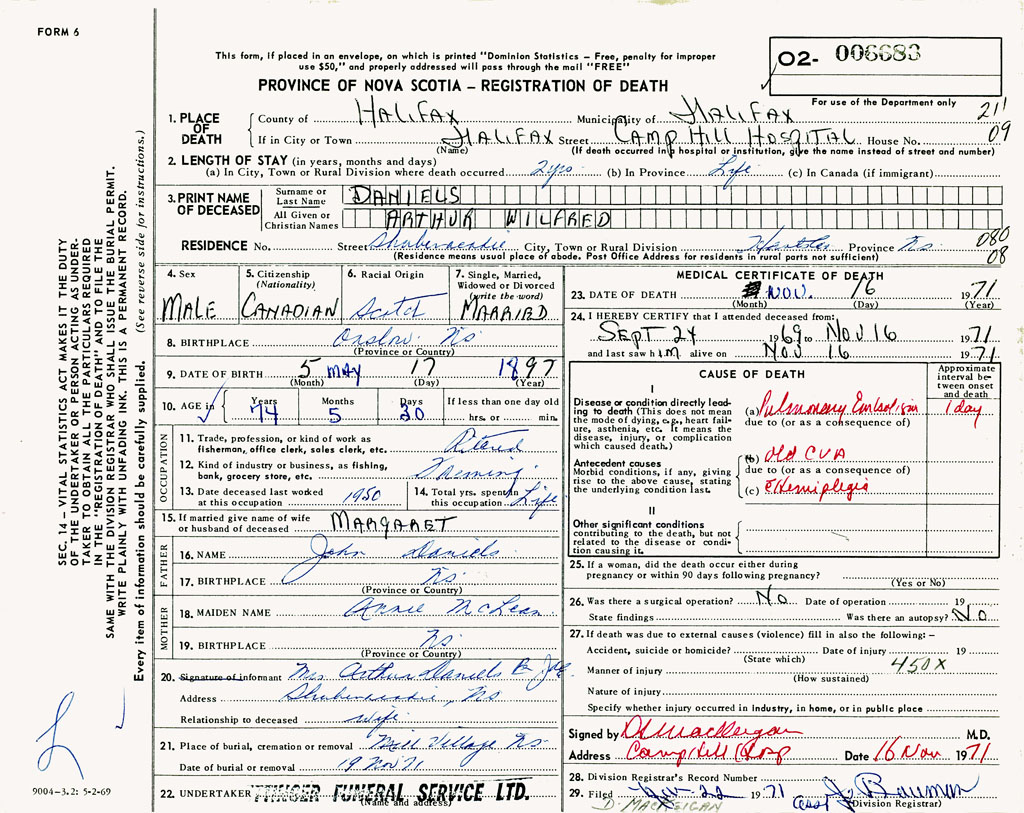 FORM 6
This form, if placed in an envelope, on which is printed "Dominion Statistics – Free, penalty for improper
use $50," and properly addressed will pass through the mail "FREE"
02- 006683
For use of the Department only
PROVINCE OF NOVA SCOTIA – REGISTRATION OF DEATH
21'
09
1. PLACE OF DEATH
County of HALIFAX Municipality of HALIFAX
If in City or Town HALIFAX Street CAMP HILL HOSPITAL House No.
(Name) (If death occurred in hospital or institution, give the name instead of street and number)
2. LENGTH OF STAY (in years, months and days)
(a) In City, Town or Rural Division where death occurred 2 yrs (b) In Province Life (c) In Canada (if immigrant)
3. PRINT NAME OF DECEASED
Surname or Last Name DANIELS
All Given or Christian Names ARTHUR WILFRED
RESIDENCE No. Street Shubenacadie City, Town or Rural Division Hants Co. Province NS
080
08
(Residence means usual place of abode. Post Office Address for residents in rural parts not sufficient)
4. Sex MALE
5. Citizenship (Nationality) CANADIAN
6. Racial Origin Scotch
7. Single, Married, Widowed or Divorced (write the word) MARRIED
8. BIRTHPLACE Onslow NS
(Province or Country)
9. DATE OF BIRTH 5 MAY 17 1897
(Month) (Day) (Year)
10. AGE in Years 74 Months 5 Days 30 If less than one day old hrs. or min.
OCCUPATION
11. Trade, profession, or kind of work as fisherman, office clerk, sales clerk, etc. Retired
12. Kind of industry or business, as fishing, bank, grocery store, etc.
13. Date deceased last worked at this occupation 1950
14. Total yrs. spent in this occupation Life
15. If married give name of wife or husband of deceased MARGARET
FATHER
16. NAME John Daniels
17. BIRTHPLACE NS
(Province or Country)
MOTHER
18. MAIDEN NAME Annie McLean
19. BIRTHPLACE NS
(Province or Country)
20. Signature of informant Mrs Arthur Daniels
Address Shubenacadie, NS
Relationship to deceased wife
21. Place of burial, cremation or removal Mill Village NS
Date of burial or removal 19 Nov 71
22. UNDERTAKER FUNERAL SERVICE LTD.
(Name and address)
MEDICAL CERTIFICATE OF DEATH
23. DATE OF DEATH NOV. 16 1971
(Month) (Day) (Year)
24. I HEREBY CERTIFY that I attended deceased from:
SEPT 24 1969 to NOV 16 1971
and last saw him alive on NOV 16 1971
CAUSE OF DEATH
Approximate interval between onset and death
I
Disease or condition directly leading to death (This does not mean the mode of dying, e.g., heart failure, asthenia, etc. It means the disease, injury, or complication which caused death.)
(a) Pulmonary Embolism 1 day
due to (or as a consequence of)
Antecedent causes
Morbid conditions, if any, giving rise to the above cause, stating the underlying condition last.
(b) Old CVA
due to (or as a consequence of)
(c) c̄ Hemiplegia
II
Other significant conditions contributing to the death, but not related to the disease or condition causing it.
25. If a woman, did the death occur either during pregnancy or within 90 days following pregnancy?
(Yes or No)
26. Was there a surgical operation? No Date of operation 19
State findings Was there an autopsy? NO
27. If death was due to external causes (violence) fill in also the following: –
Accident, suicide or homicide? Date of injury 19
(State which) 450X
Manner of injury
(How sustained)
Nature of injury
Specify whether injury occurred in industry, in home, or in public place
Signed by D MacKeigan M.D.
Address Camp Hill Hosp Date 16 Nov 1971
28. Division Registrar's Record Number
29. Filed Nov-22 1971 J. Bauman
Division Registrar)
D. MACKEIGAN
9004-3.2: 5-2-69
SEC. 14 – VITAL STATISTICS ACT MAKES IT THE DUTY
OF THE UNDERTAKER OR PERSON ACTING AS UNDERTAKER
TO OBTAIN ALL THE PARTICULARS REQUIRED
IN THE "REGISTRATION OF DEATH" AND TO FILE THE
SAME WITH THE DIVISION REGISTRAR WHO SHALL ISSUE THE BURIAL PERMIT.
WRITE PLAINLY WITH UNFADING INK. THIS IS A PERMANENT RECORD.
Every item of information should be carefully supplied. (See reverse side for instructions.)